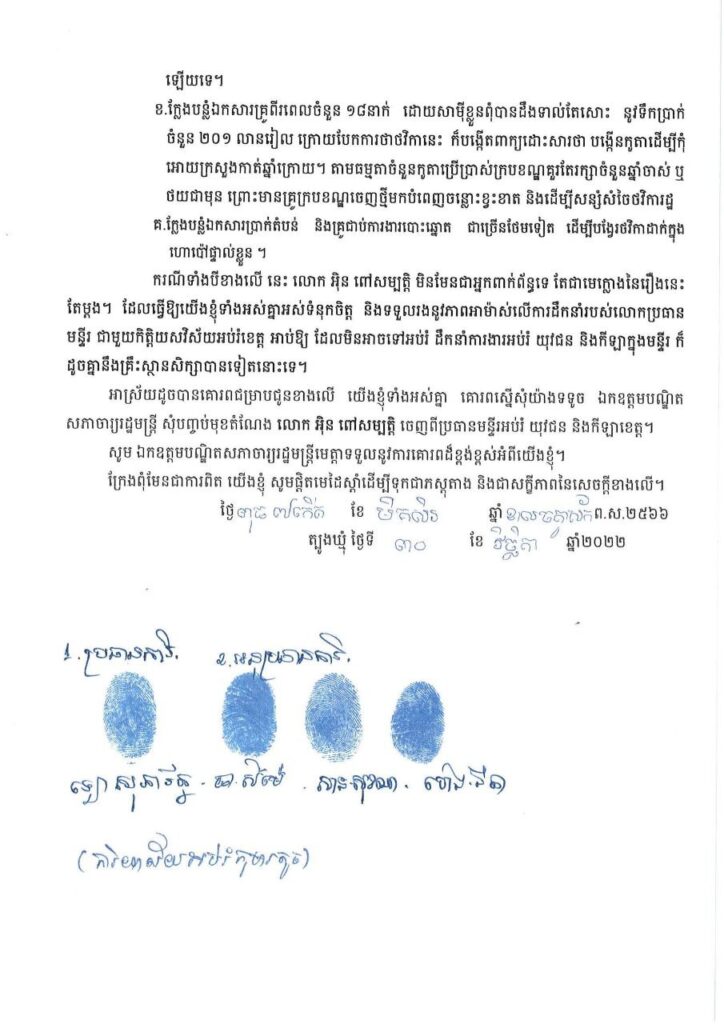 ឡើយទេ។
ខ.ក្លែងបន្លំឯកសារគ្រូពីរពេលចំនួន ១៨នាក់ ដោយសាម៉ីខ្លួនពុំបានដឹងទាល់តែសោះ នូវទឹកប្រាក់
ចំនួន ២០១ លានរៀល ក្រោយបែកការថាថវិកានេះ ក៏បង្កើតពាក្យដោះសារថា បង្កើនកូតាដើម្បីកុំ
អោយក្រសួងកាត់ឆ្នាំក្រោយ។ តាមធម្មតាចំនួនកូតាប្រើប្រាស់ក្របខណ្ឌគួរតែរក្សាចំនួនឆ្នាំចាស់ ឬ
ថយជាមុន ព្រោះមានគ្រូក្របខណ្ឌចេញថ្មីមកបំពេញចន្លោះខ្វះខាត និងដើម្បីសន្សំសំចៃថវិការដ្ឋ
គ.ក្លែងបន្លំឯកសារប្រាក់តំបន់ និងគ្រូជាប់ការងារបោះឆ្នោត ជាច្រើនថែមទៀត ដើម្បីបង្វែរថវិកាដាក់ក្នុង
ហោប៉ៅផ្ទាល់ខ្លួន ។
ករណីទាំងបីខាងលើ នេះ លោក អ៊ិន ពៅសម្បត្តិ មិនមែនជាអ្នកពាក់ព័ន្ធទេ តែជាមេក្លោងនៃរឿងនេះ
តែម្តង។ ដែលធ្វើឱ្យយើងខ្ញុំទាំងអស់គ្នាអស់ទំនុកចិត្ត និងទទួលរងនូវភាពអាម៉ាស់លើការដឹកនាំរបស់លោកប្រធាន
មន្ទីរ ជាមួយកិត្តិយសវិស័យអប់រំខេត្ត អាប់ឱ្យ ដែលមិនអាចទៅអប់រំ ដឹកនាំការងារអប់រំ យុវជន និងកីឡាក្នុងមន្ទីរ ក៏
ដូចគ្នានឹងគ្រឹះស្ថានសិក្សាបានទៀតនោះទេ។
អាស្រ័យដូចបានគោរពជម្រាបជូនខាងលើ យើងខ្ញុំទាំងអស់គ្នា គោរពស្នើសុំយ៉ាងទទូច ឯកឧត្តមបណ្ឌិត
សភាចារ្យរដ្ឋមន្ត្រី សុំបញ្ចប់មុខតំណែង លោក អ៊ិន ពៅសម្បត្តិ ចេញពីប្រធានមន្ទីរអប់រំ យុវជន និងកីឡាខេត្ត។
សូម ឯកឧត្តមបណ្ឌិតសភាចារ្យរដ្ឋមន្ត្រីមេត្តាទទួលនូវការគោរពដ៏ខ្ពង់ខ្ពស់អំពីយើងខ្ញុំ។
ក្រែងពុំមែនជាការពិត យើងខ្ញុំ សូមផ្តិតមេដៃស្តាំដើម្បីទុកជាភស្តុតាង និងជាសក្ខីភាពនៃសេចក្តីខាងលើ។
ថ្ងៃ ពុធ ៧កើត ខែ មិគសិរ ឆ្នាំ ខាលចត្វាស័ក ព.ស.២៥៦៦
ត្បូងឃ្មុំ ថ្ងៃទី ៣០ ខែ វិច្ឆិកា ឆ្នាំ២០២២
1. ប្រធានការិ. 2. អនុប្រធានការិ.